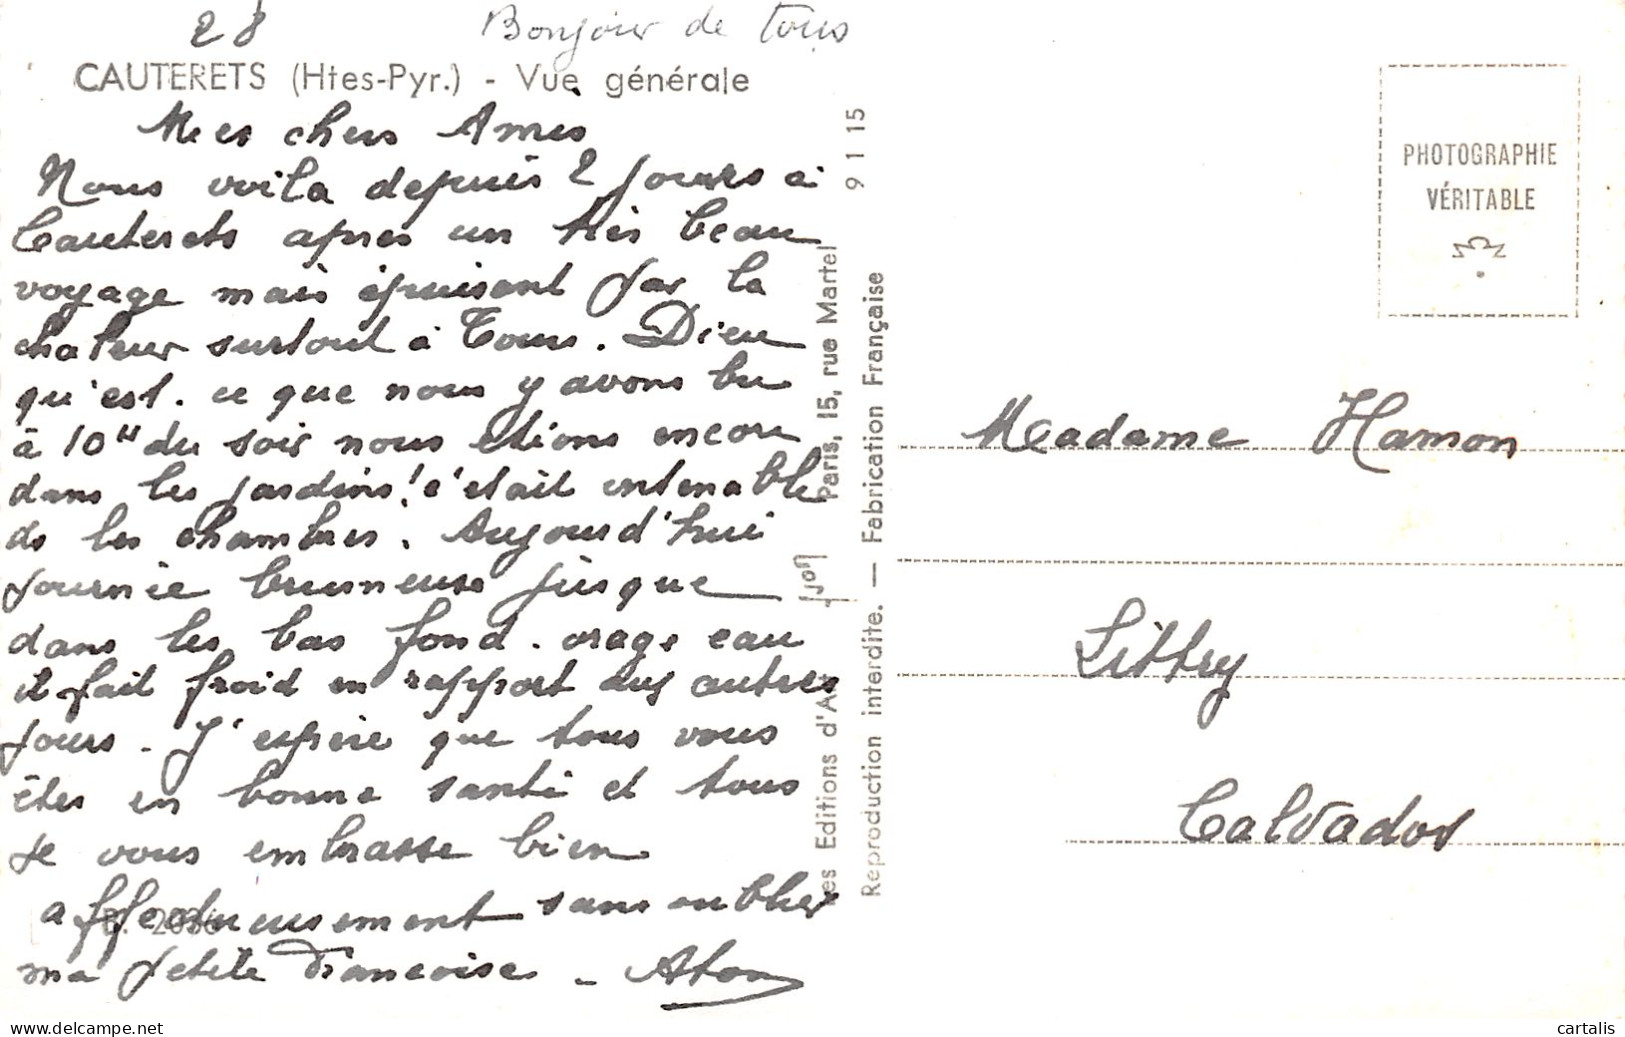 28
Bonjour de tous
CAUTERETS (Htes-Pyr.) - Vue générale
Mes chers Amis
Nous voila depuis 2 jours à
Cauterets apres un très beau
voyage mais épuisant par la
chaleur surtout à Tours. Dieu
qu'est. ce que nous y avons bu
à 10H du soir nous etions encore
dans les jardins! c'etait intenable
ds les chambres. Aujourd'hui
journée brumeuse jusque
dans les bas fond. orage eau
il fait froid en rapport aux autres
jours. J'espère que tous vous
êtes en bonne santé et tous
je vous embrasse bien
affectueusement sans oublier
ma petite Francoise -
9 1 15
Les Editions d'Art
Yvon
Paris, 15, rue Martel
Reproduction interdite. — Fabrication Française
PHOTOGRAPHIE
VÉRITABLE
Madame Hamon
Littry
Calvados
www.delcampe.net
cartalis